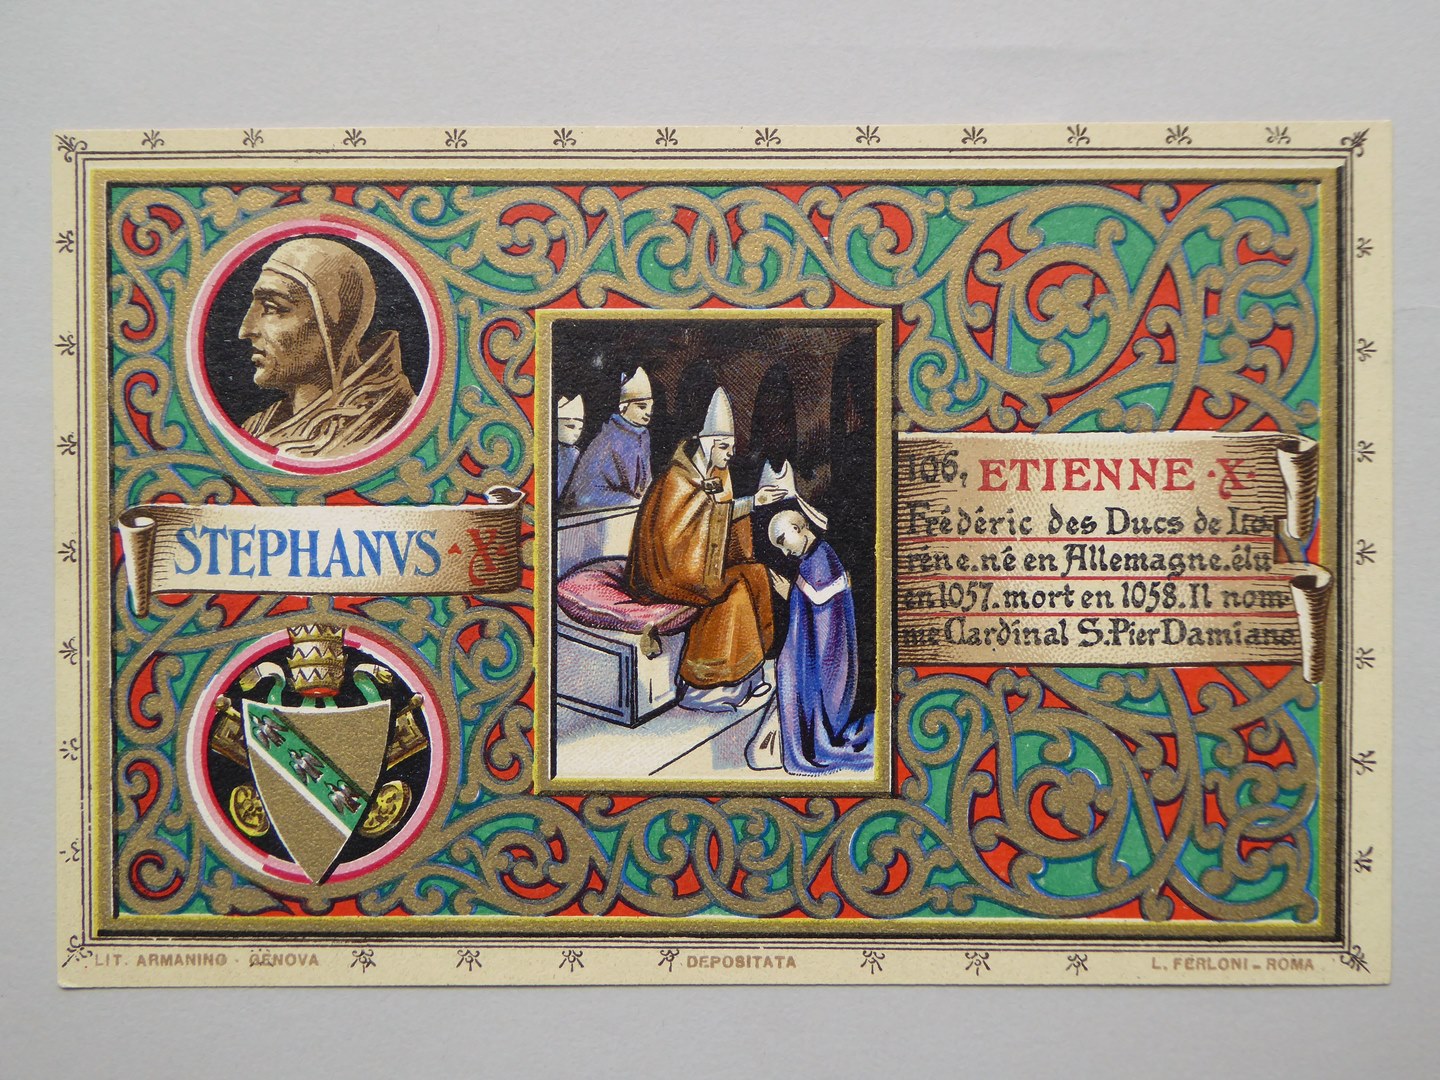 STEPHANVS · X ·
106, ETIENNE · X ·
Frédéric des Ducs de Lo-
rene. né en Allemagne. élu
en 1057. mort en 1058. Il nom-
me Cardinal S. Pier Damiano
LIT. ARMANINO · GENOVA
DEPOSITATA
L. FERLONI - ROMA